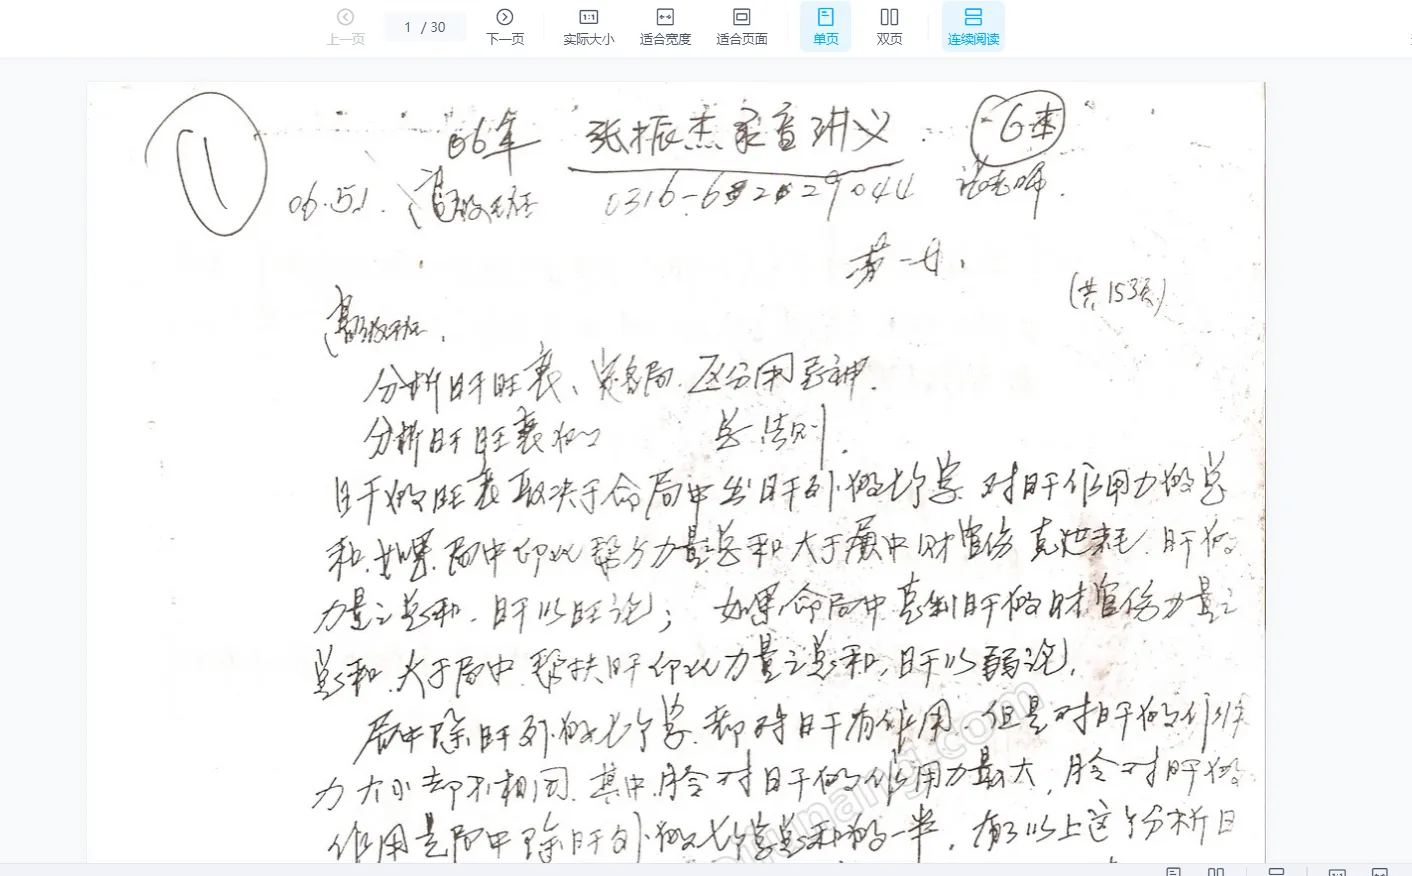 上一页
1 / 30
下一页
实际大小
适合宽度
适合页面
单页
双页
连续阅读
1
06年 张振杰录音讲义 6本
06.5.1. 高级班
第一册.
(共153页)
高级班.
分析日干旺衰、定格局.区分用忌神.
分析日干旺衰的 总法则.
日干的旺衰取决于命局中除日干外的七个字.对日干作用力的总
和.如果局中印比帮扶力量总和大于局中财官伤克泄耗.日干的
力量之总和.日干以旺论; 如果命局中克制日干的财官伤力量之
总和.大于局中帮扶日干印比力量之总和,日干以弱论.
局中除日干外的七个字.都对日干有作用.但是对日干的作用
力大小却不相同.其中月令对日干的作用力最大,月令对日干的
作用是局中除日干外的七个字总和的一半.有了以上这个分析日